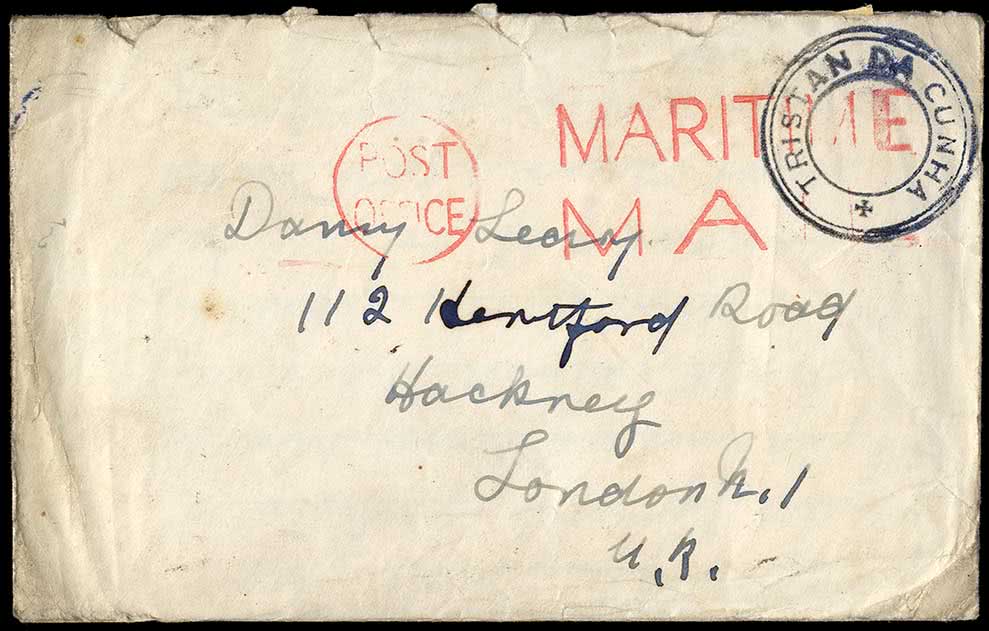 TRISTAN DA CUNHA
POST
OFFICE
MARITIME
MA
Danny
112 Hertford Road
Hackney
London N.1
U.K.